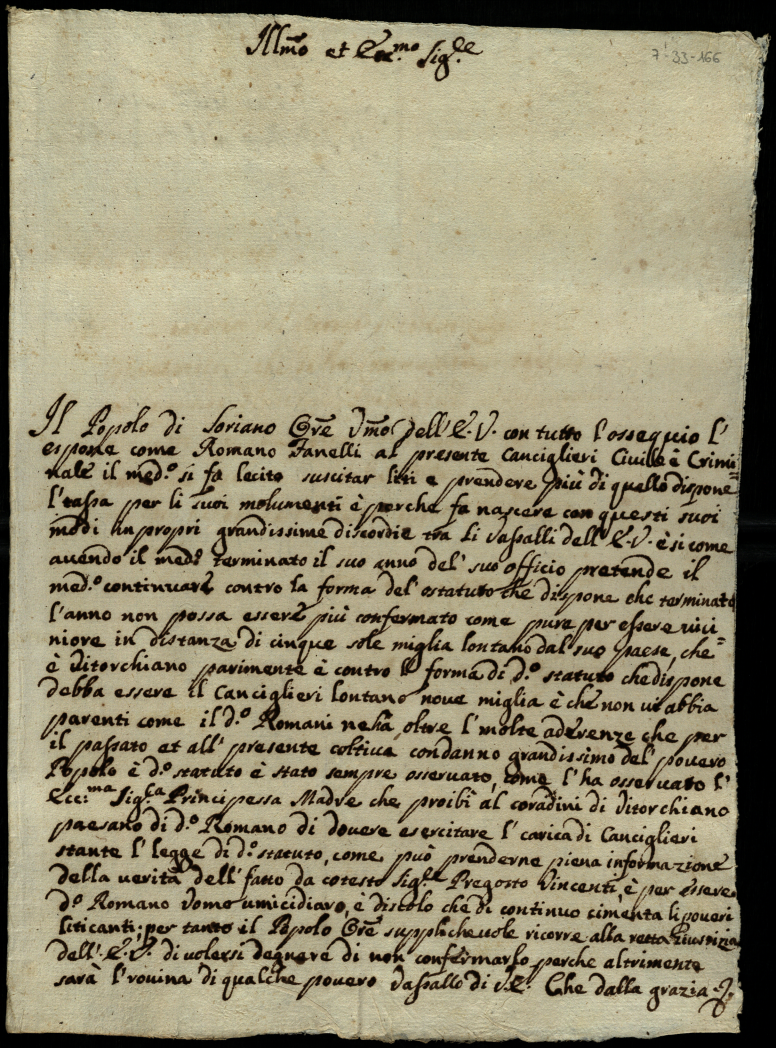 Illmo et Ecc.mo Sig.re
7-33-166
Il Popolo di Soriano Ore Vmo dell'E.V. con tutto l'ossequio l'
espone come Romano Fanelli al presente Canciglieri Civile è Crimi
nale il med.o si fa lecito suscitar liti e prendere più di quello dispone
l'tassa per li suoi molumenti è perche fa nascere con questi suoi
modi impropri grandissime discordie tra li Vassalli dell'E.V. è si come
avendo il med.o terminato il suo anno del' suo officio pretende il
med.o continuare contro la forma del' ostatuto che dispone che terminato
l'anno non possa essere più confermato come pure per essere vici
niore in distanza di cinque sole miglia lontano dal suo paese, che
è Vitorchiano parimente è contro la forma di d.o statuto che dispone
debba essere il Canciglieri lontano nove miglia è che non vi abbia
parenti come il d.o Romani ne hà, oltre l'molte aderenze che per
il passato et all' presente coltiva con danno grandissimo del' povero
Popolo è d.o statuto è stato sempre osservato, come l'ha osservato l'
Ecc.ma Sig.ra Principessa Madre che proibì al coradini di Vitorchiano
paesano di d.o Romano di dovere esercitare l'carica di Canciglieri
stante l'legge di d.o statuto, come può prenderne piena informazione
della verità dell'fatto da cotesto Sig.re Preposto Vincenti, è per essere
d.o Romano Vomo umicidiaro, è discolo che di continuo cimenta li poveri
liticanti; per tanto il Popolo Ore supplichevole ricorre alla retta Giustizia
dell' E.V. di volersi degnare di non confermarlo perche altrimente
sarà l'rovina di qualche povero Vassallo di V.E. Che dalla grazia